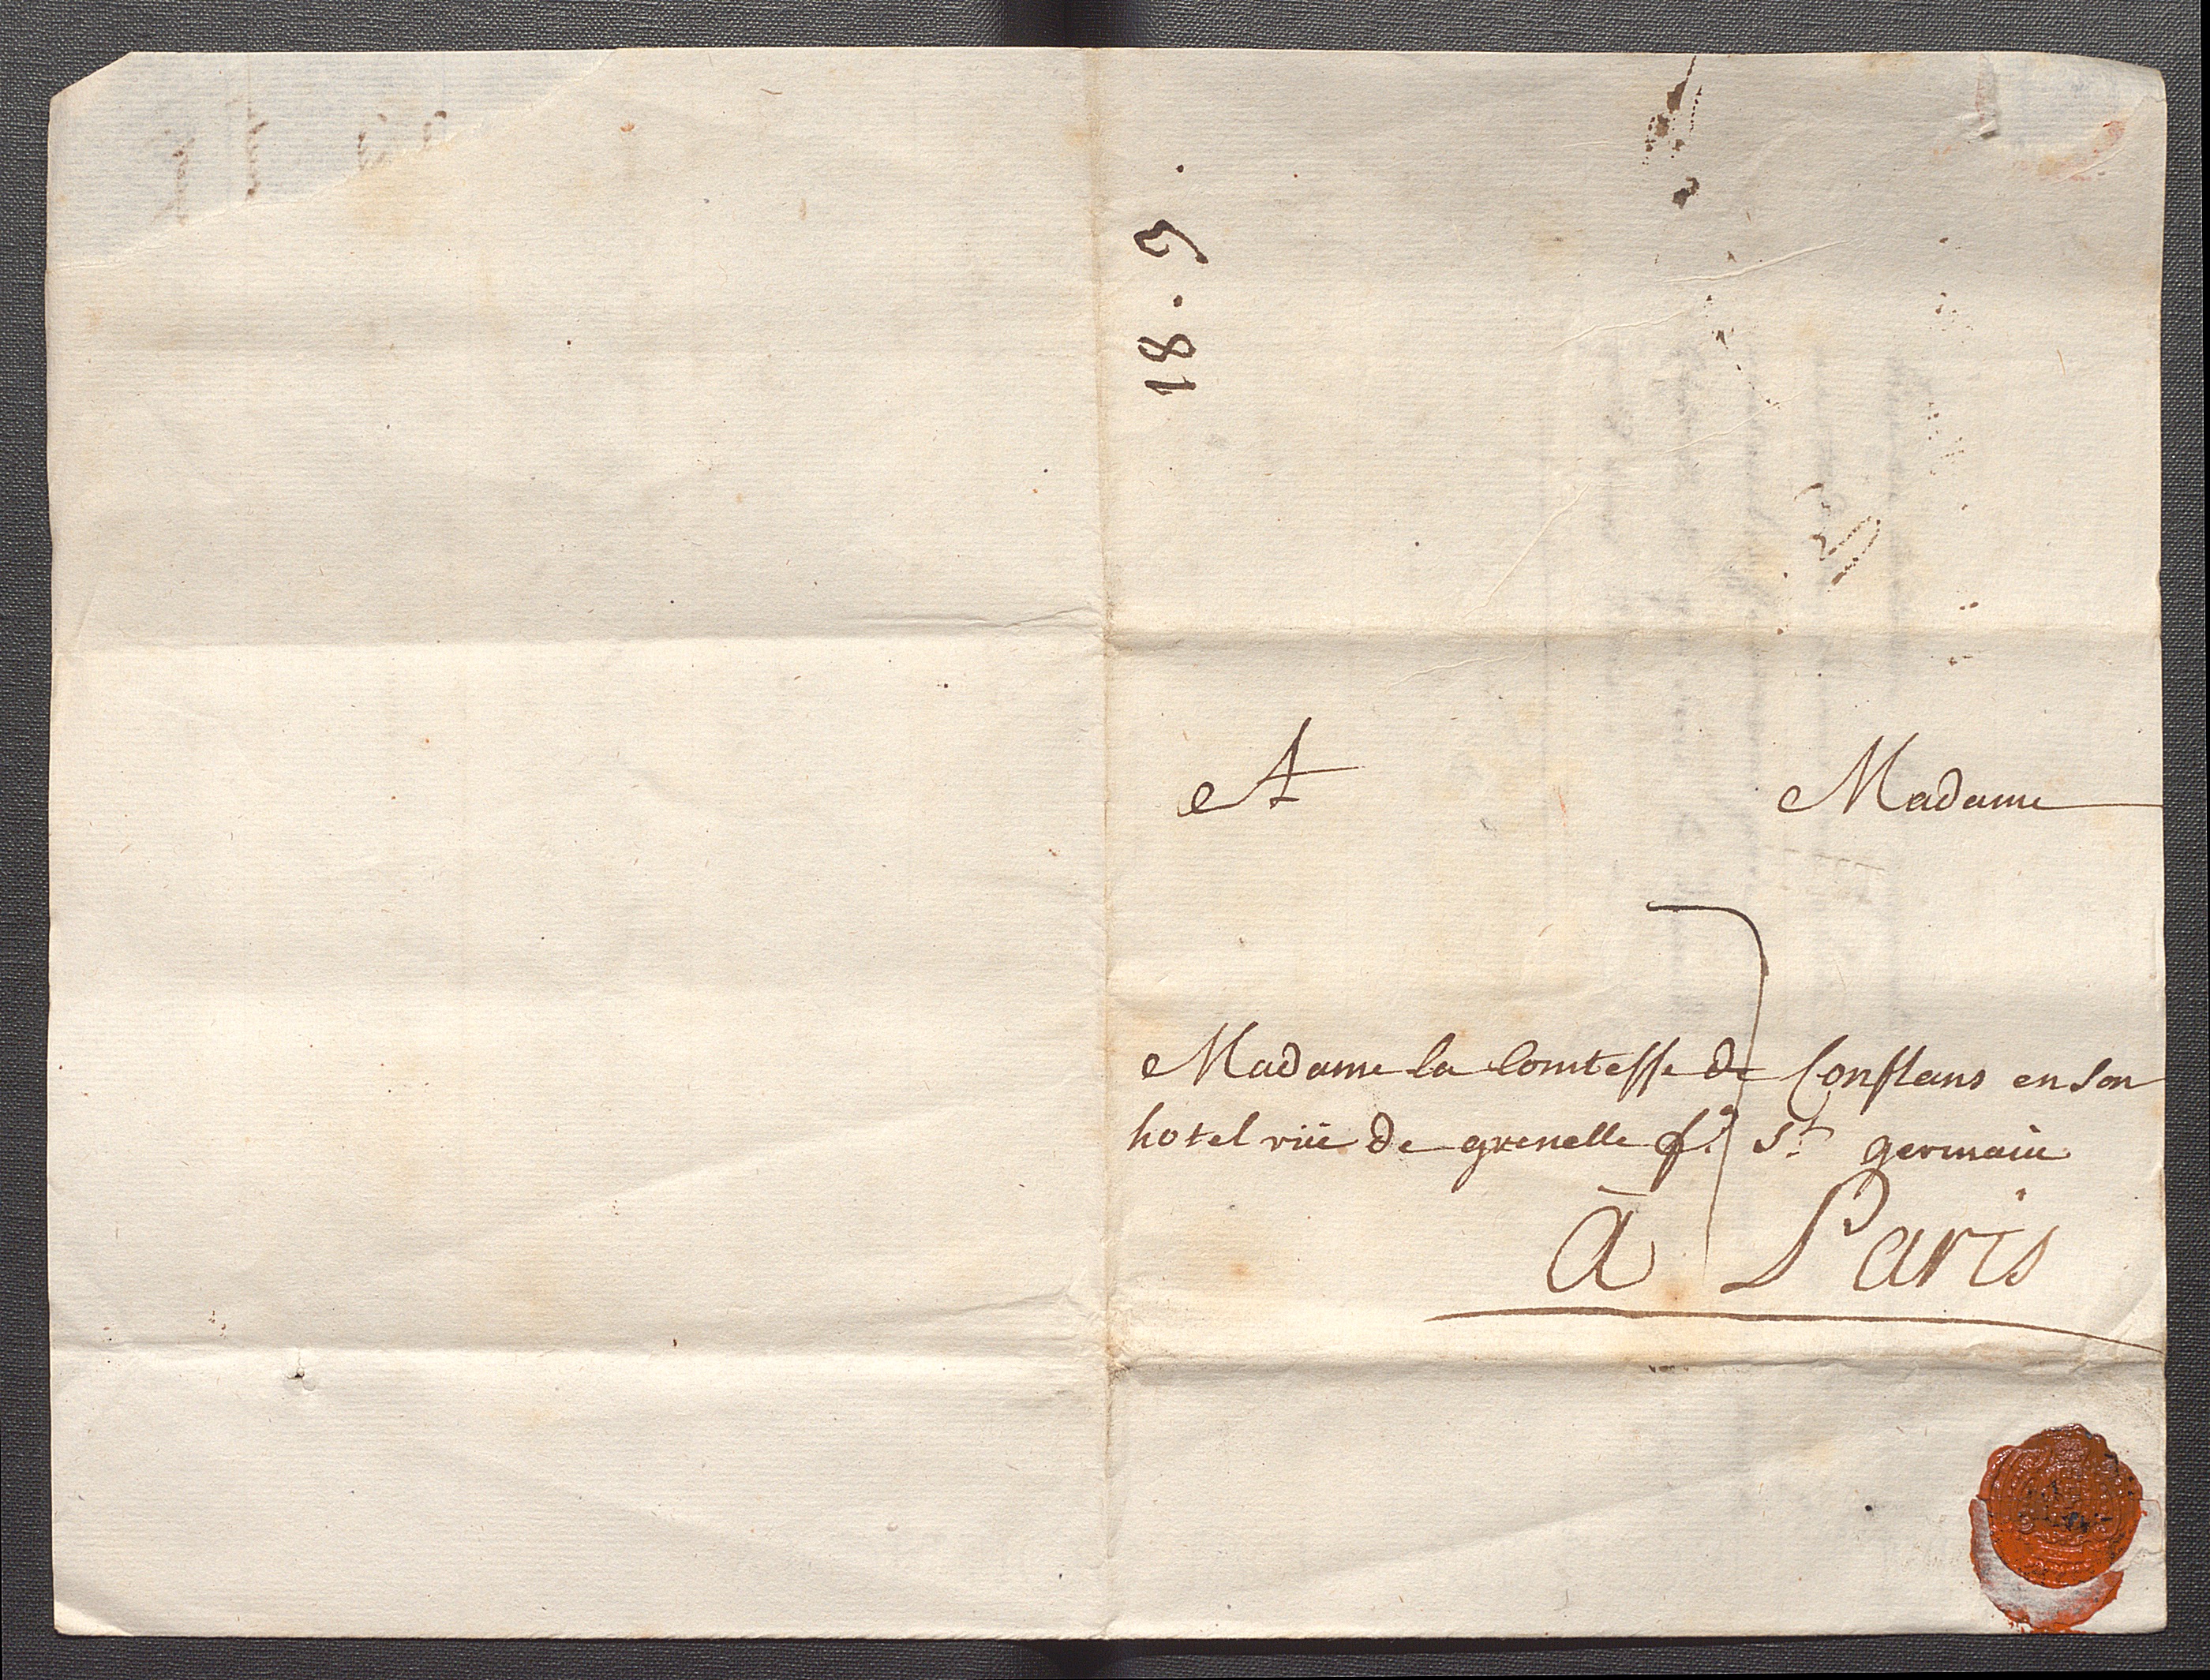 18 . 9 .
A Madame
Madame la Comtesse de Conflans en son
hotel rüe de grenelle f.g St. germain
à Paris